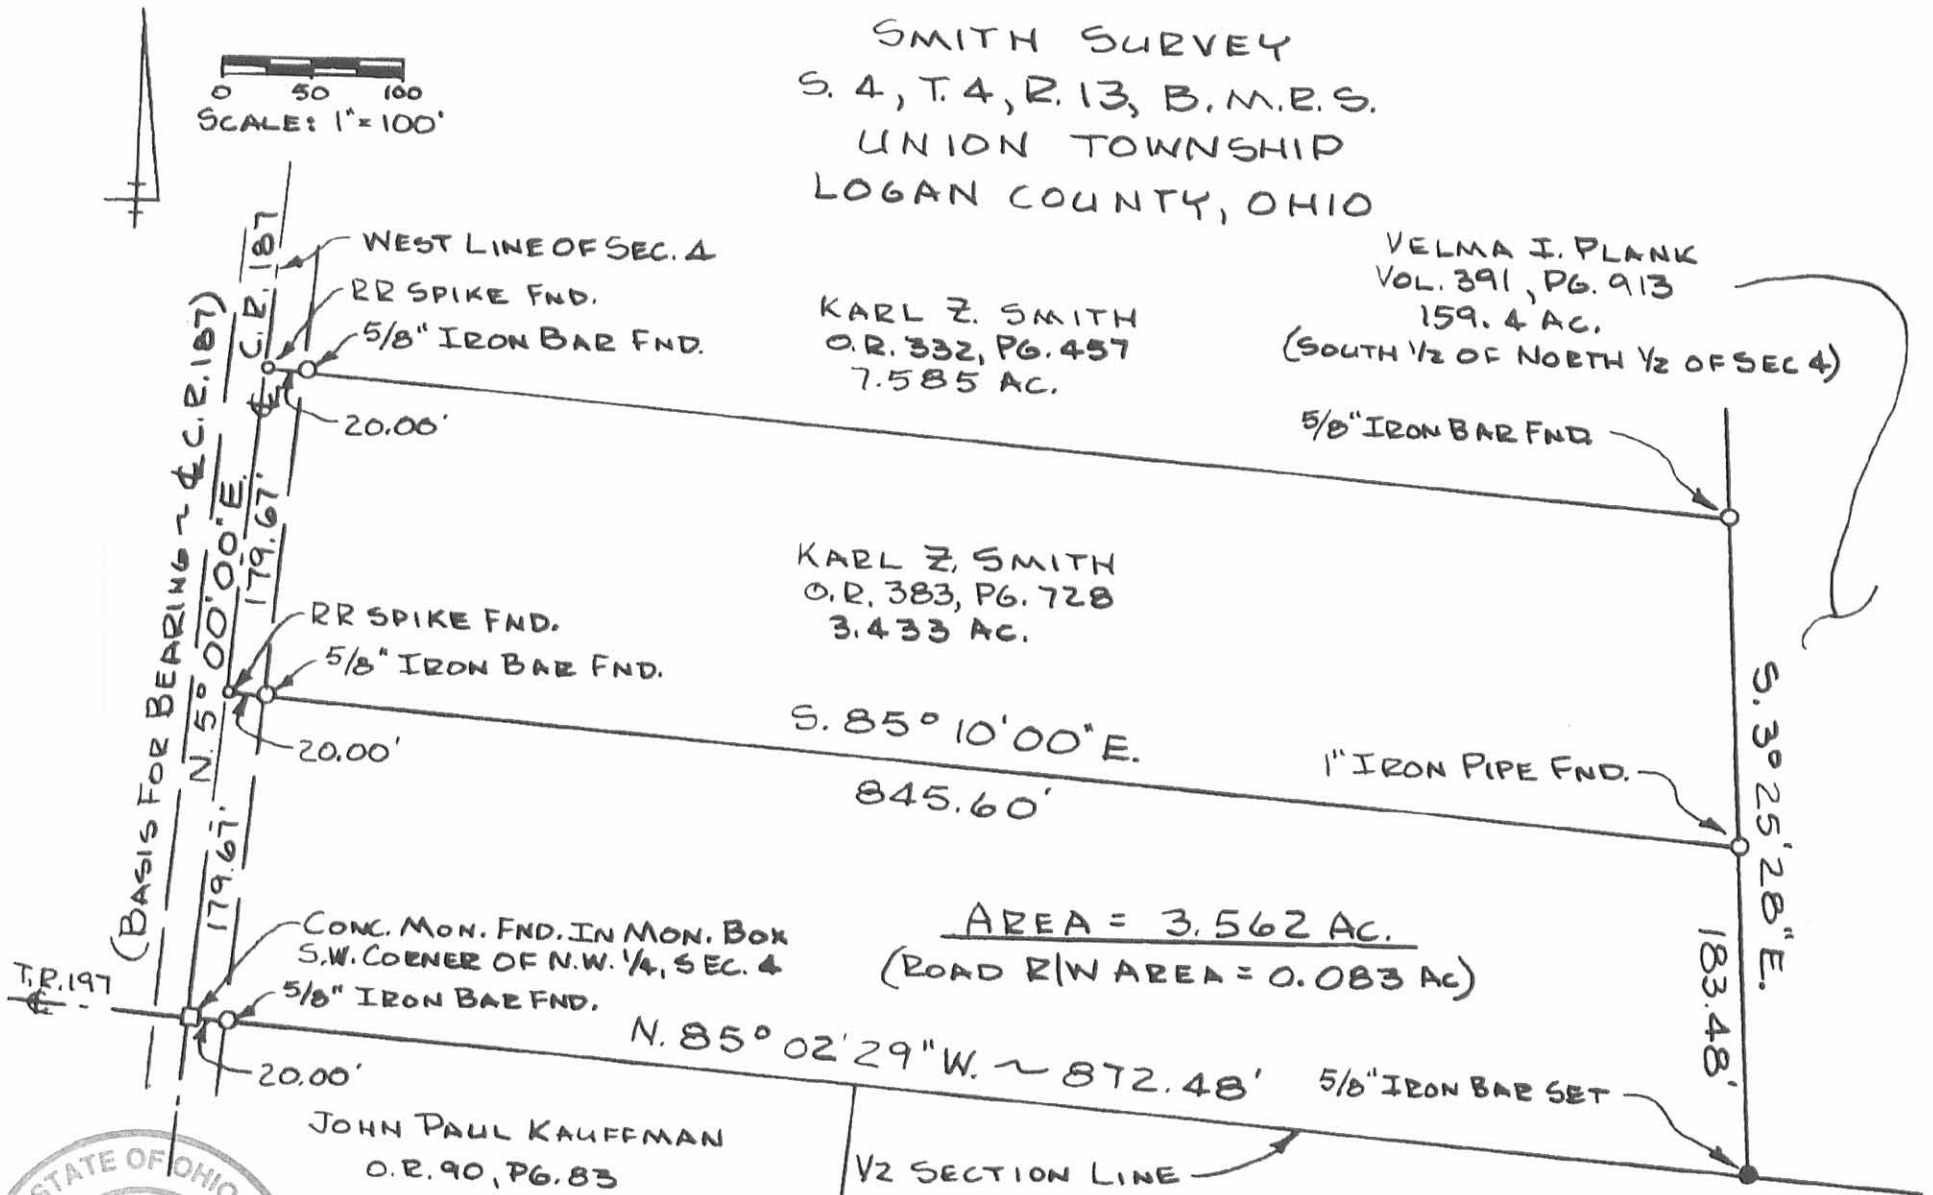 SMITH SURVEY
S. 4, T. 4, R. 13, B.M.R.S.
UNION TOWNSHIP
LOGAN COUNTY, OHIO
0 50 100
SCALE: 1"=100'
C.R. 187
WEST LINE OF SEC. 4
RR SPIKE FND.
5/8" IRON BAR FND.
20.00'
KARL Z. SMITH
O.R. 332, PG. 457
7.585 AC.
VELMA I. PLANK
VOL. 391, PG. 913
159.4 AC.
(SOUTH 1/2 OF NORTH 1/2 OF SEC 4)
5/8" IRON BAR FND.
(BASIS FOR BEARING ~ ℄ C.R. 187)
N. 5° 00' 00" E.
℄
179.67'
KARL Z. SMITH
O.R. 383, PG. 728
3.433 AC.
RR SPIKE FND.
5/8" IRON BAR FND.
20.00'
S. 85° 10' 00" E.
845.60'
1" IRON PIPE FND.
S. 3° 25' 28" E.
183.48'
179.67'
CONC. MON. FND. IN MON. BOX
S.W. CORNER OF N.W. 1/4, SEC. 4
5/8" IRON BAR FND.
20.00'
T.R. 197
℄
AREA = 3.562 AC.
(ROAD R/W AREA = 0.083 AC)
N. 85° 02' 29" W. ~ 872.48'
5/8" IRON BAR SET
JOHN PAUL KAUFFMAN
O.R. 90, PG. 83
1/2 SECTION LINE
STATE OF OHIO